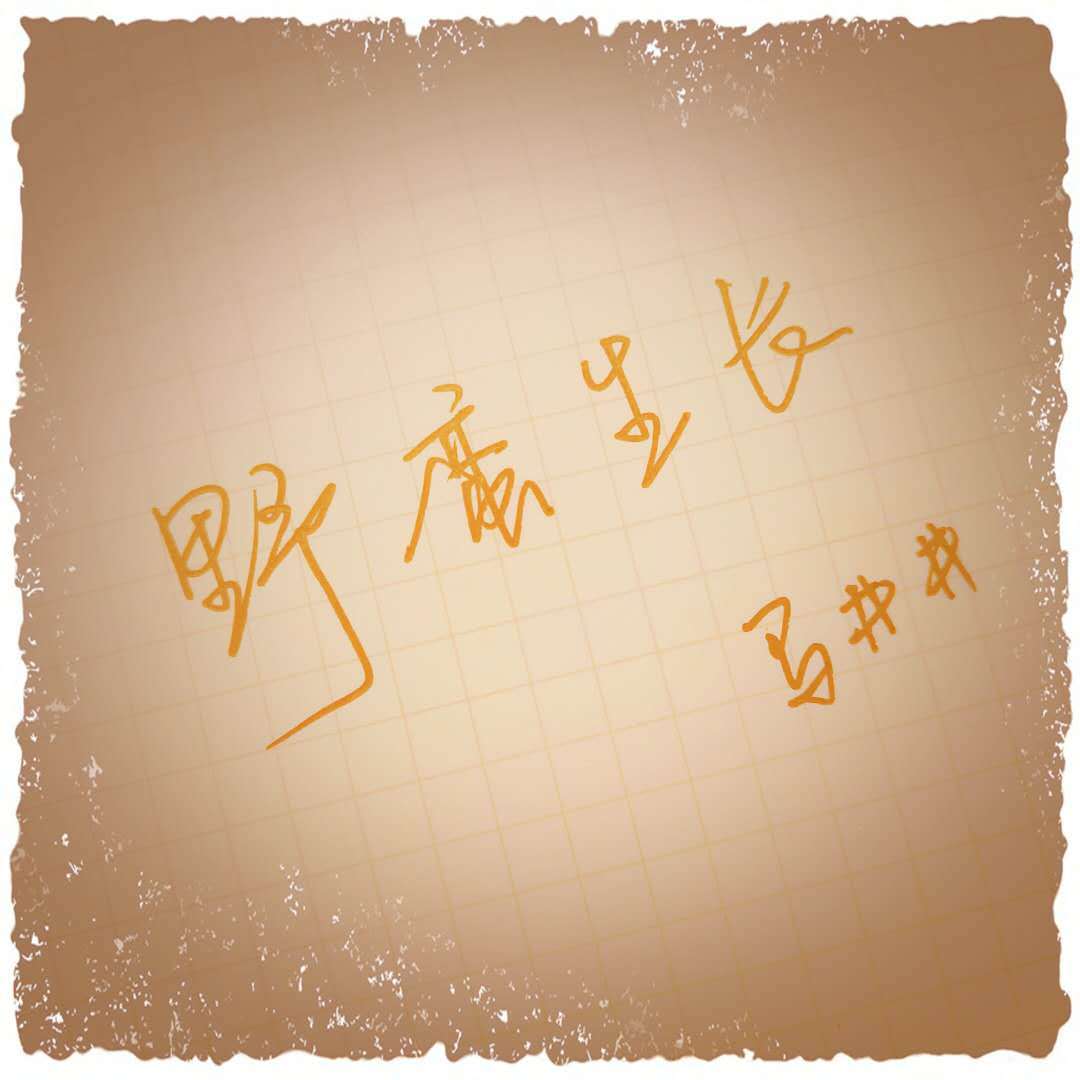 野魔生长
马井井